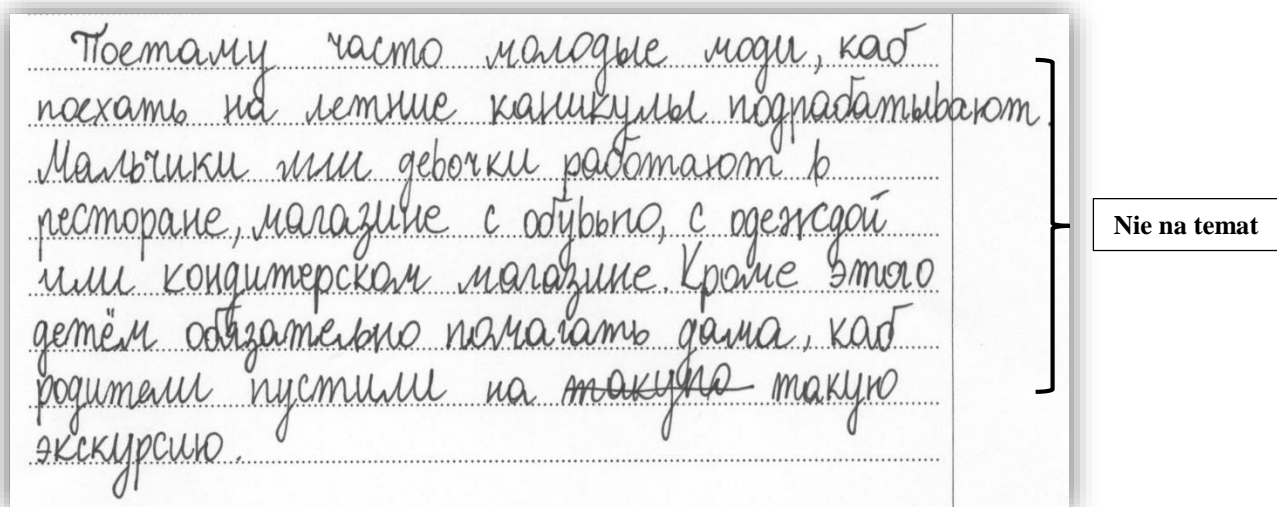 Поетаму часто молодые люди, каб
поехать на летние каникулы подрабатывают.
Мальчики или девочки работают в
ресторане, магазине с обувью, с одеждой
или кондитерском магазине. Кроме этого
детём обязательно памагать дама, каб
родители пустили на такую такую
экскурсию.
Nie na temat